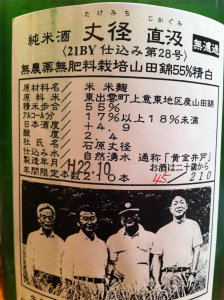 たけみち じかぐみ
純米酒 丈径 直汲 無濾過
〈21BY 仕込み第28号〉
無農薬無肥料栽培山田錦55%精白
原材料名／米 米麹
原料米／東出雲町上意東地区産山田錦
精米歩合／55%
アルコール分／17%以上18%未満
日本酒度／+4.9
酸度／2.4
杜氏／石原丈径
仕込み水／自然湧水 通称「黄金井戸」
製造年月／H22.10 お酒は二十歳から
年間限定本数210本 45/210